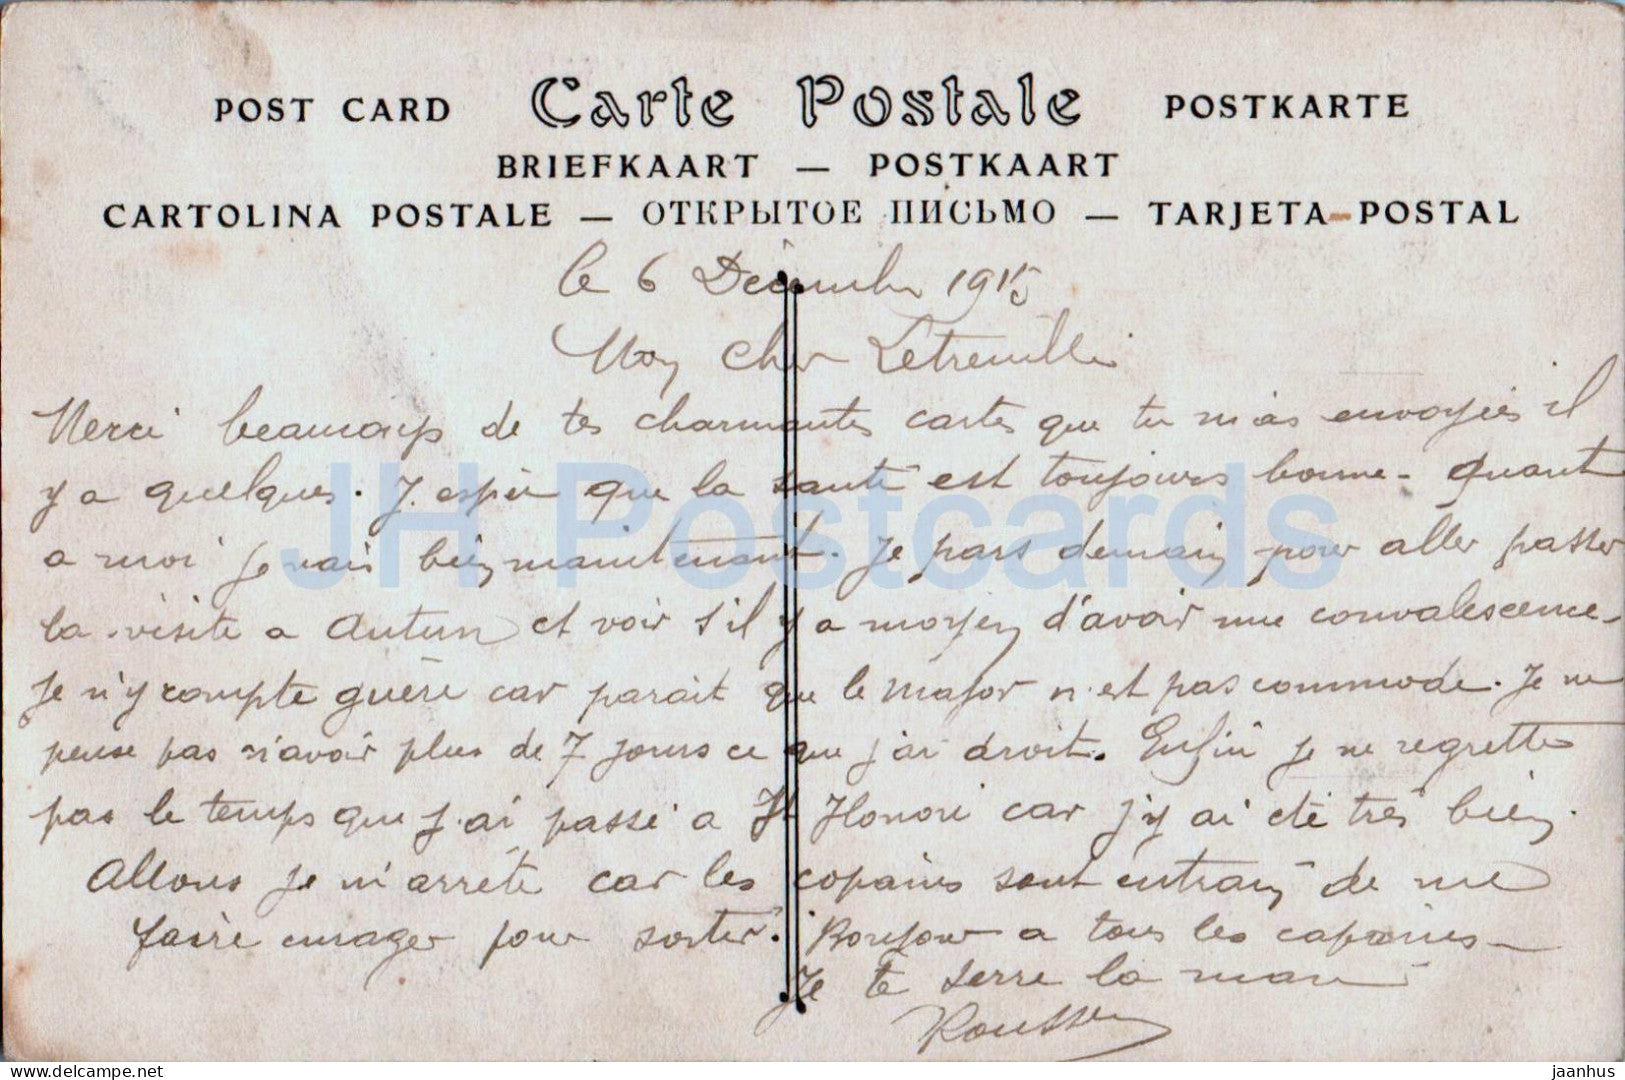 POST CARD Carte Postale POSTKARTE
BRIEFKAART — POSTKAART
CARTOLINA POSTALE — ОТКРЫТОЕ ПИСЬМО — TARJETA POSTAL
le 6 Décembre 1915
Mon cher
Merci beaucoup de tes charmantes cartes que tu m'as envoyées il
y a quelques. J'espère que la santé est toujours bonne - Quant
a moi je vais bien maintenant. Je pars demain pour aller passer
la visite a Autun et voir s'il y a moyen d'avoir une convalescence -
Je n'y compte guère car parait que le Major n'est pas commode. Je ne
pense pas n'avoir plus de 7 jours ce que j'ai droit. Enfin je ne regrette
pas le temps que j'ai passé a St Honoré car j'y ai été très bien.
Allons je m'arrête car les copains sont entrain de me
faire enrager pour sortir. Bonjour a tous les copains -
Je te serre la main
JH Postcards
delcampe.net
jaanhus